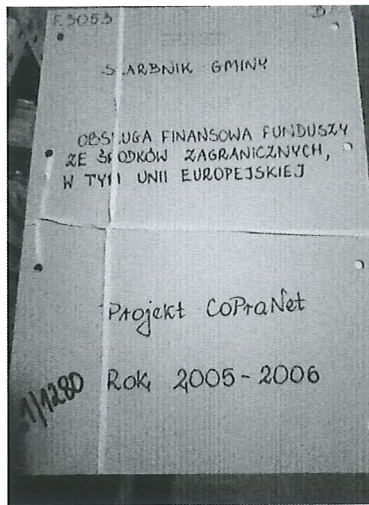 F.3053
SKARBNIK GMINY
OBSŁUGA FINANSOWA FUNDUSZY
ZE ŚRODKÓW ZAGRANICZNYCH,
W TYM UNII EUROPEJSKIEJ
Projekt CoPraNet
Rok 2005-2006
21/1280